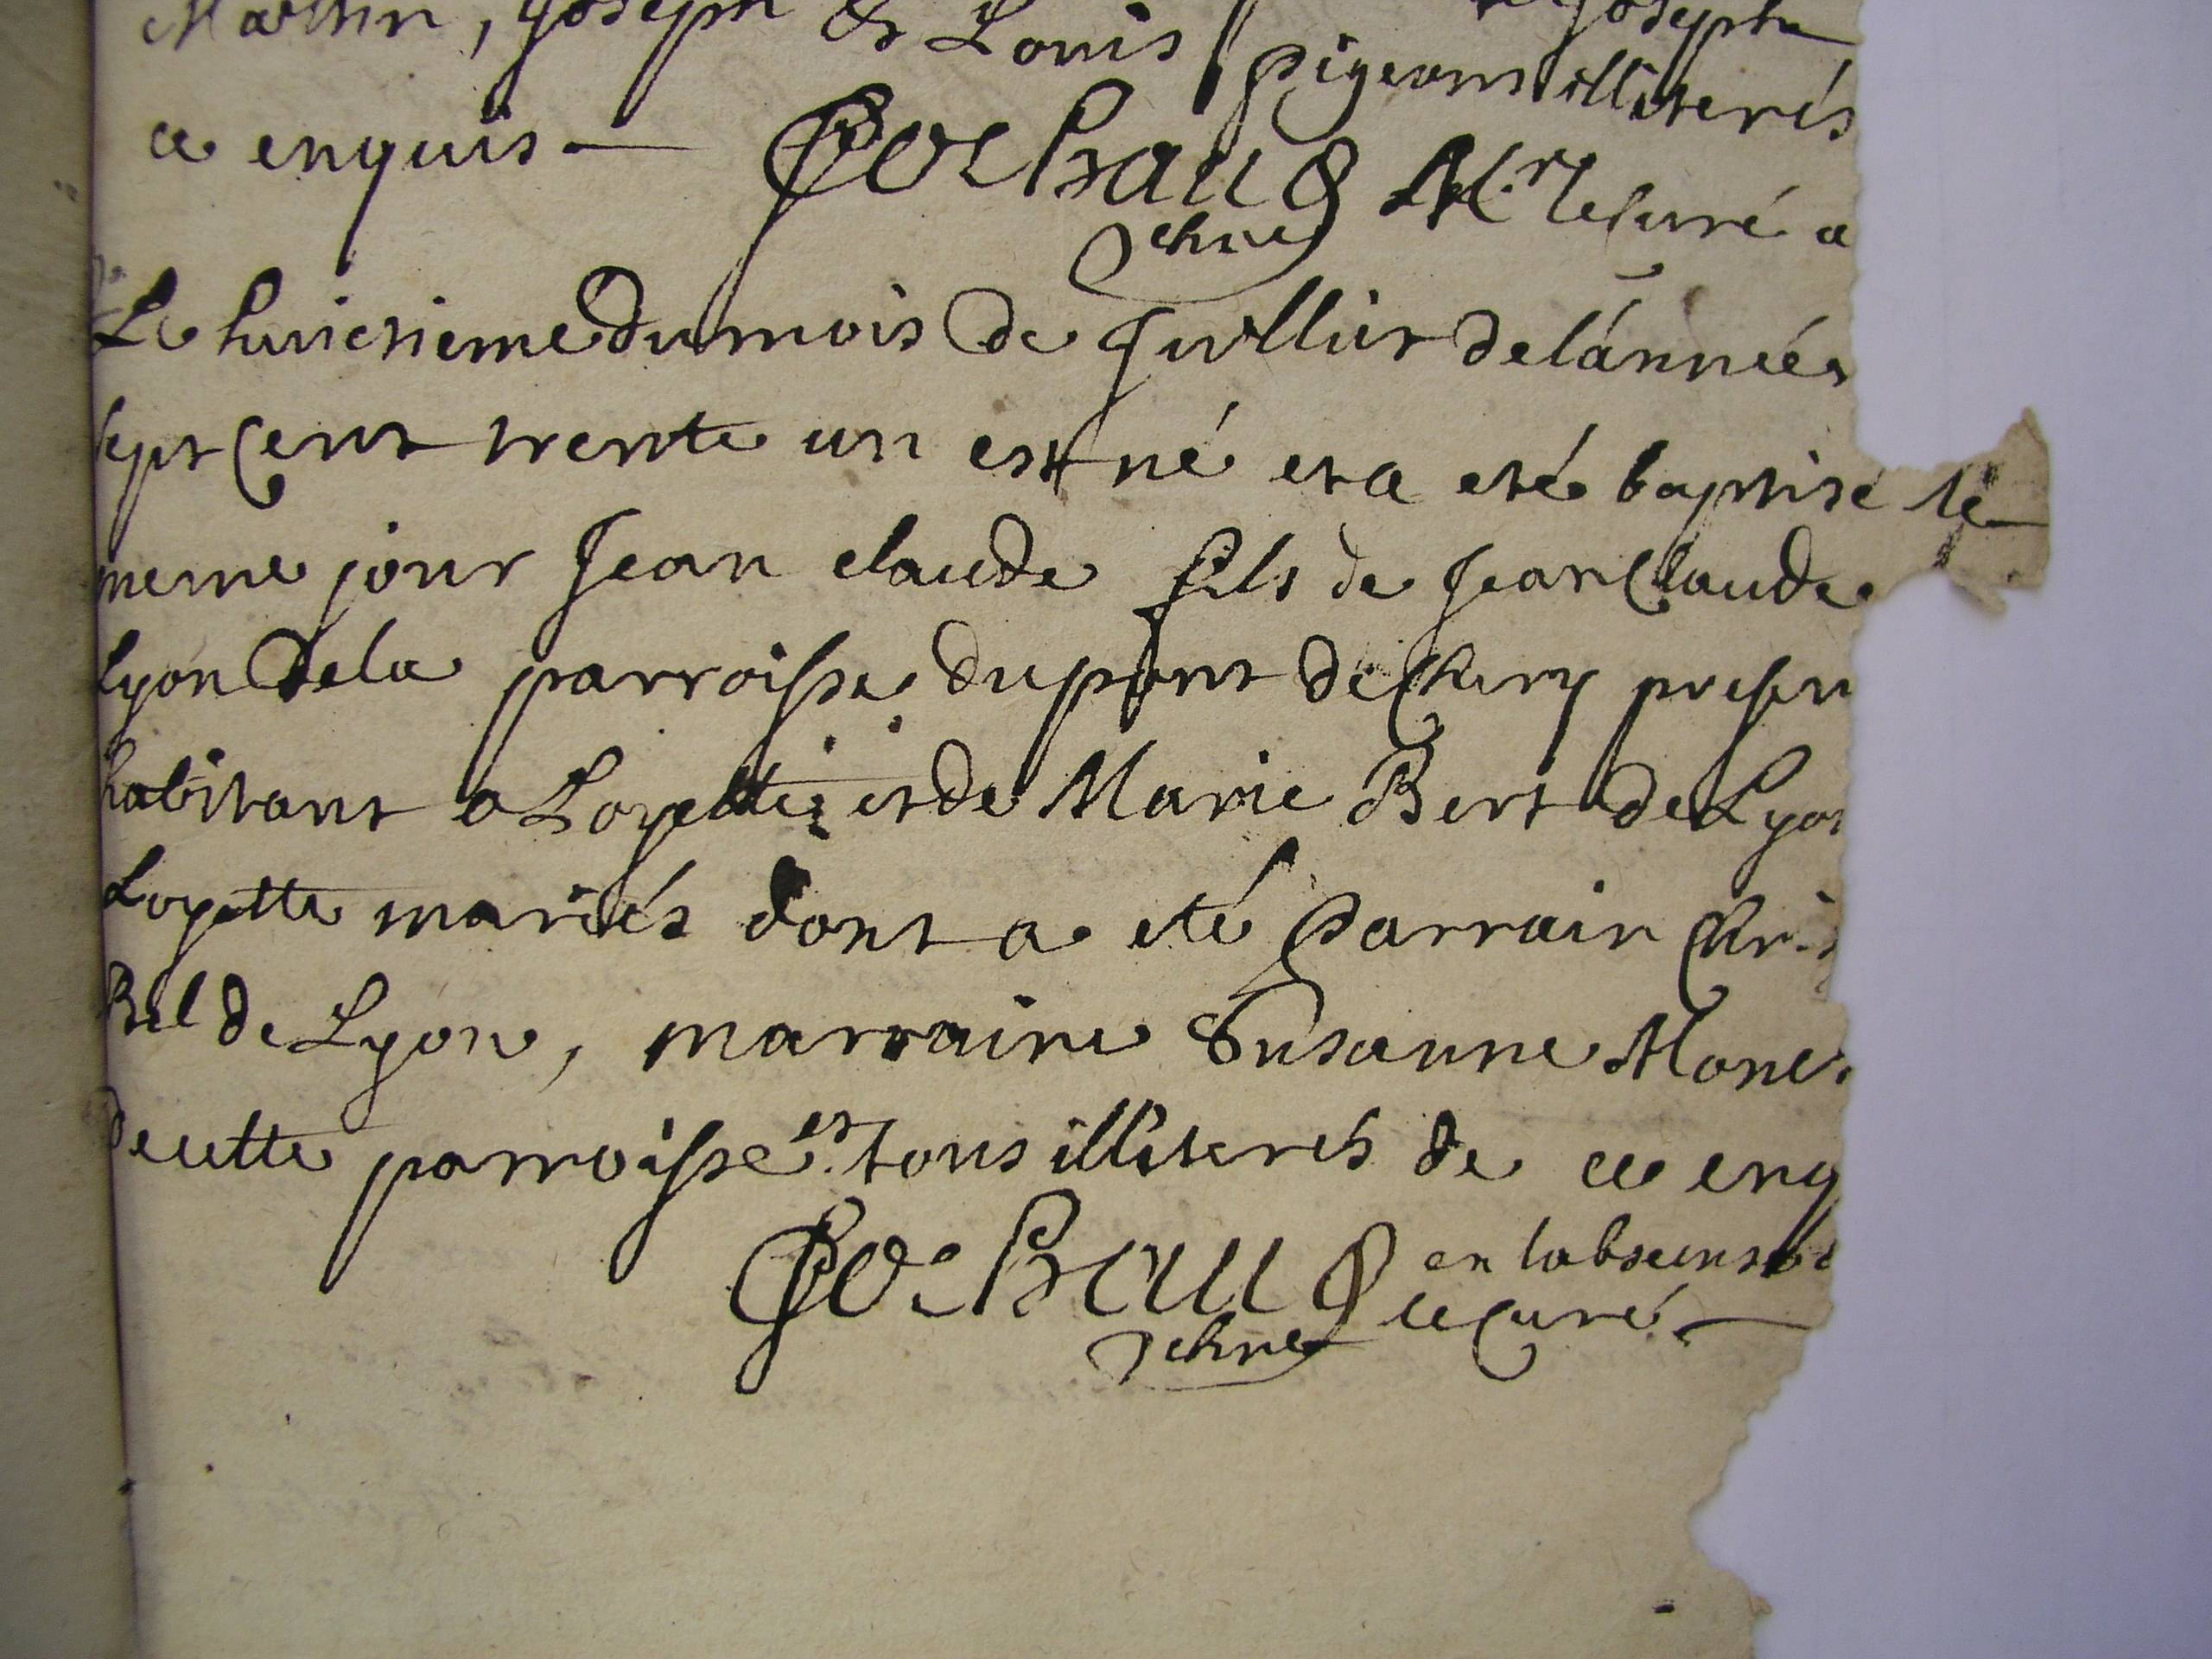 Martin, Joseph & Louis Joseph
pigeons illiterés
ce enquis — M.r le curé a
Le huictieme du mois de Juillier de lánnée
sept Cent trente un est né et a eté baptisé le
meme jour Jean claude fils de Jean Claude
Lyon de la parroisse du pont de Chery presen
habitant a Loyette et de Marie Bert de Lyon
Loyette mariés dont a eté parrain Chris
Bel de Lyon, marraine Susanne Mone
de cette parroisse et tous illiterés de ce enq
en labsense d
le Curé